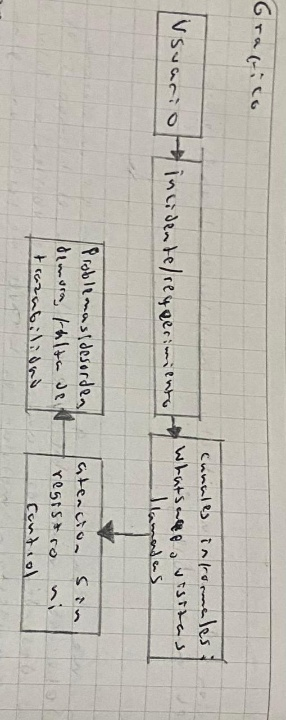 Grafico
Usuario
incidente/requerimiento
canales informales:
whatsapp, visitas
llamadas
atencion sin
registro ni
control
Problemas/desorden
demora/falta de
trazabilidad